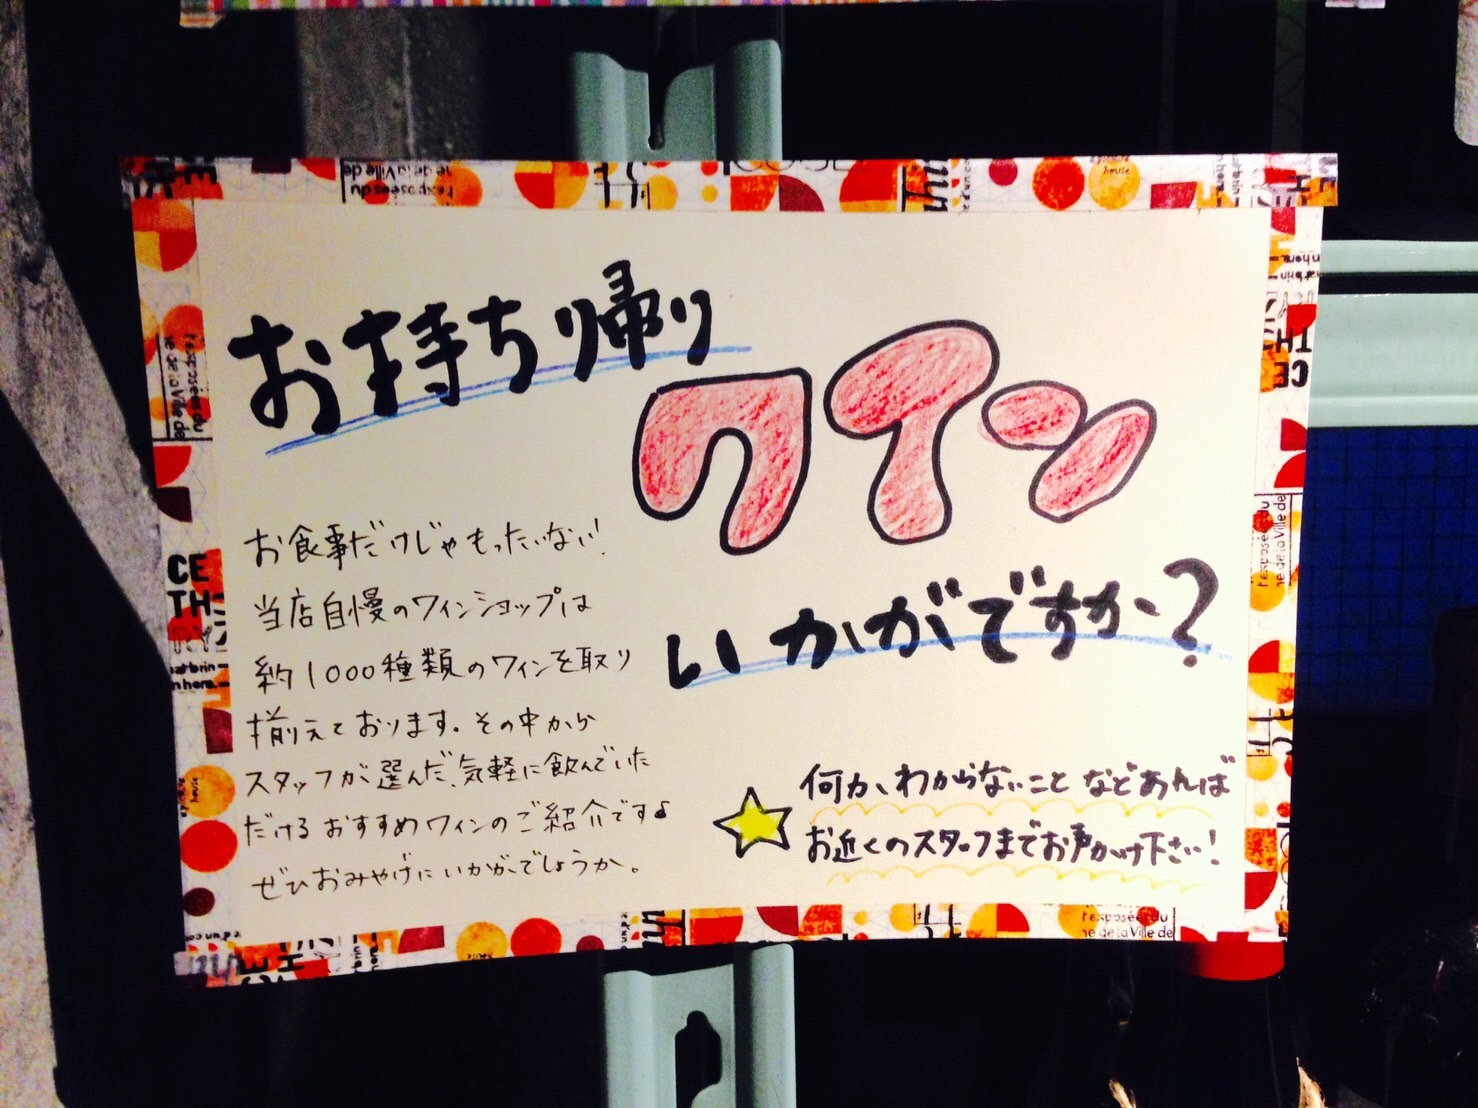 お持ち帰り
ワイン
いかがですか?
お食事だけじゃもったいない!
当店自慢のワインショップは
約1000種類のワインを取り
揃えております。その中から
スタッフが選んだ、気軽に飲んでいた
だけるおすすめワインのご紹介です♪
ぜひおみやげにいかがでしょうか。
何か、わからないことなどあれば
お近くのスタッフまでお声がけ下さい!
CE
TH
l'exposées du
ne de la Ville de